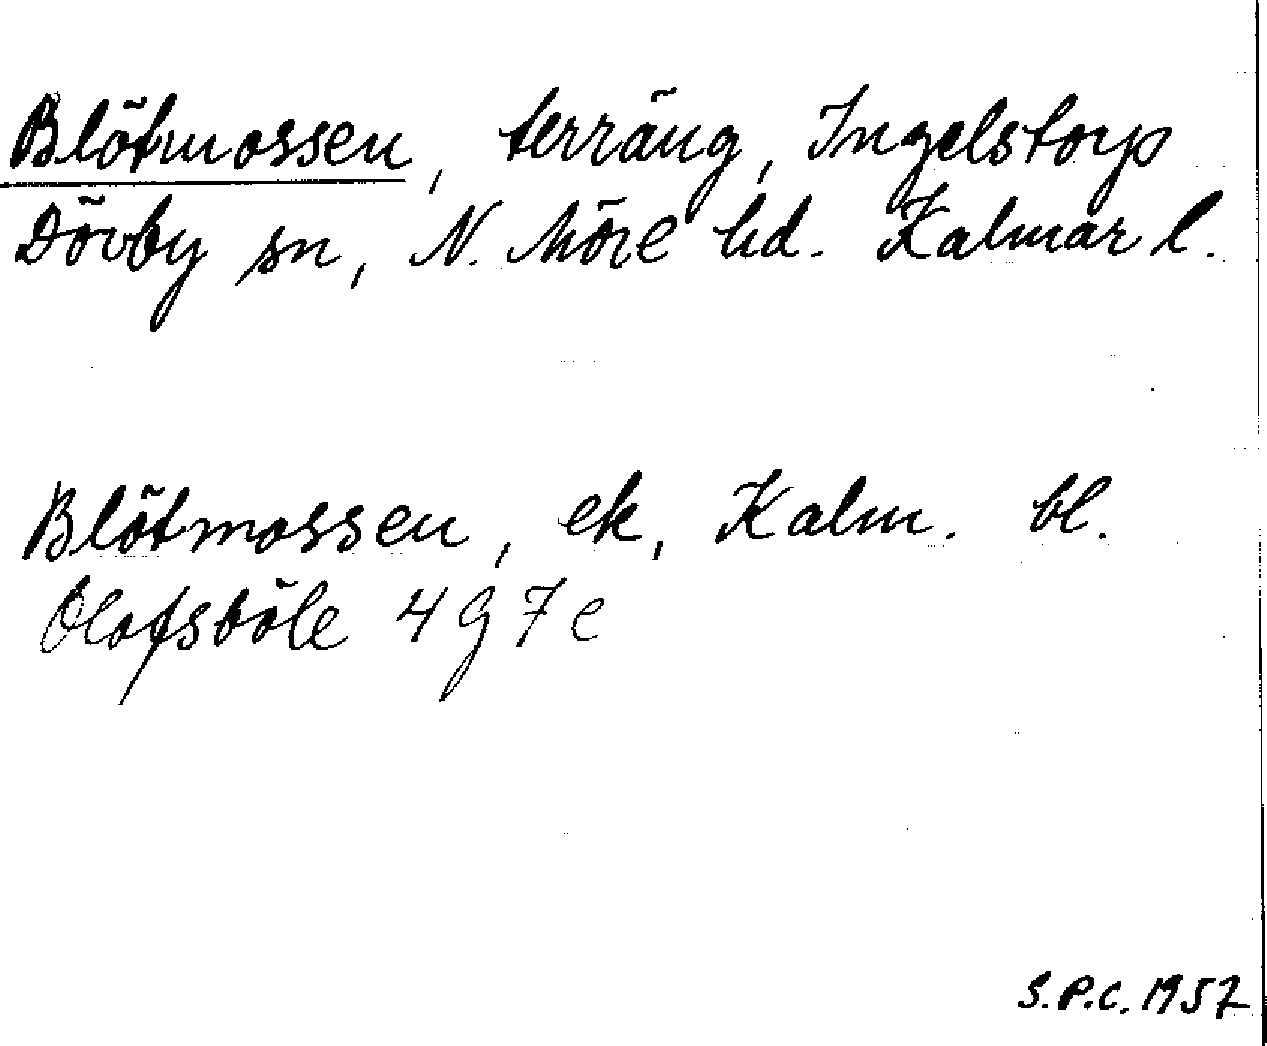 Blötmossen, terräng, Ingelstorp
Dörby sn, N. Möre hd. Kalmar l.
Blötmossen, ek, Kalm. bl.
Olofsböle 4 G 7 e
S.P.C. 1957